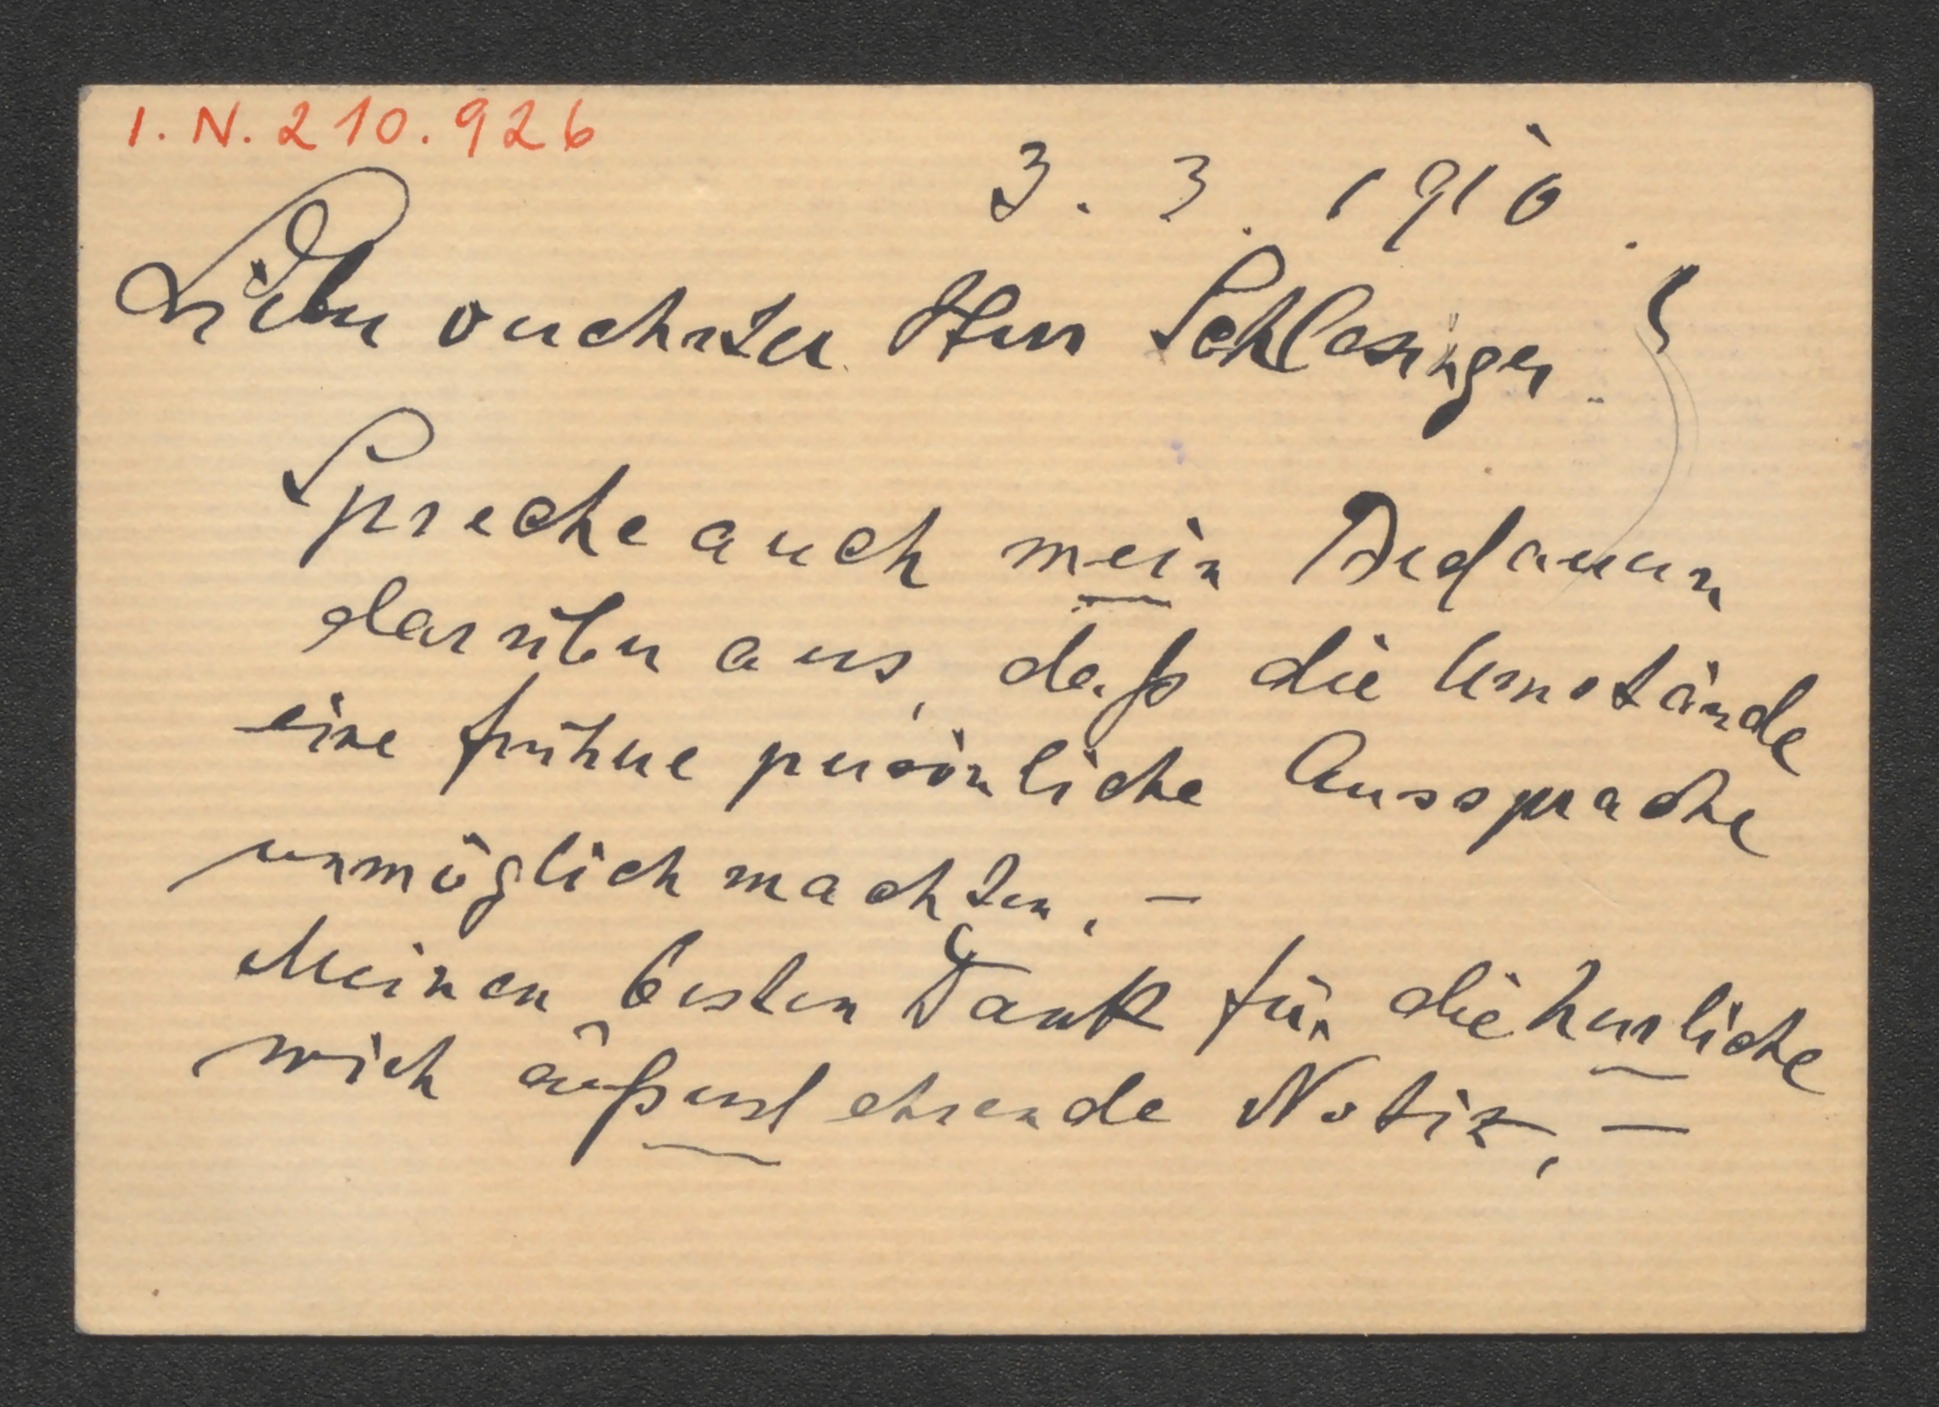 I. N. 210.926
3. 3. 1910.
Lieber verehrter Herr Schlesinger
Spreche auch mein Bedauern
darüber aus, daß die Umstände
eine frühere persönliche Aussprache
unmöglich machten. —
Meinen besten Dank für die herrliche
mich äußerst ehrende Notiz. —